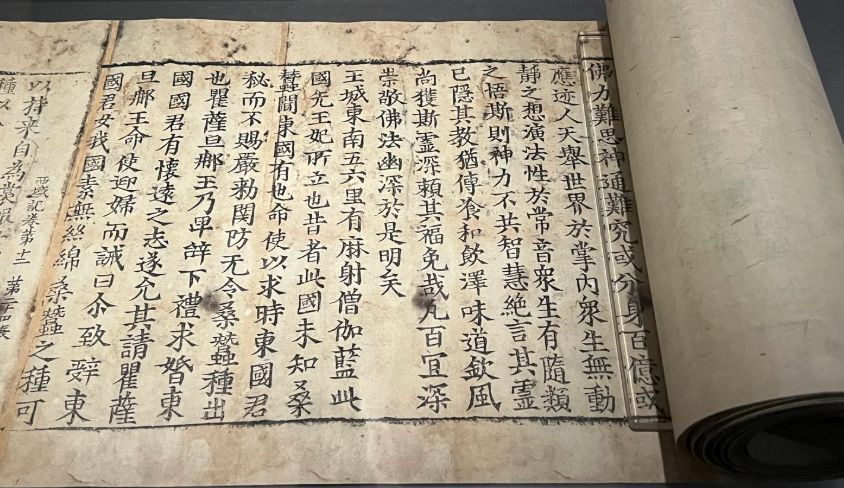 佛力難思神通難究或分身百億或
應迹人天舉世界於掌內衆生無動
靜之想演法性於常音衆生有隨類
之悟斯則神力不共智慧絶言其靈
已隱其教猶傳飡和飲澤味道欽風
尚獲斯靈深賴其福免哉凡百宜深
崇敬佛法幽深於是明矣
王城東南五六里有麻射僧伽藍此
國先王妃所立也昔者此國未知桑
蠶聞東國有也命使以求時東國君
秘而不賜嚴勑関防无令桑蠶種出
也瞿薩旦那王乃卑辝下禮求婚東
國國君有懷遠之志遂允其請瞿薩
旦那王命使迎婦而誡曰尒致辝東
國君女我國素無絲綿桑蠶之種可
西域記卷第十二 第二十四張
以持来自為裳服
種以